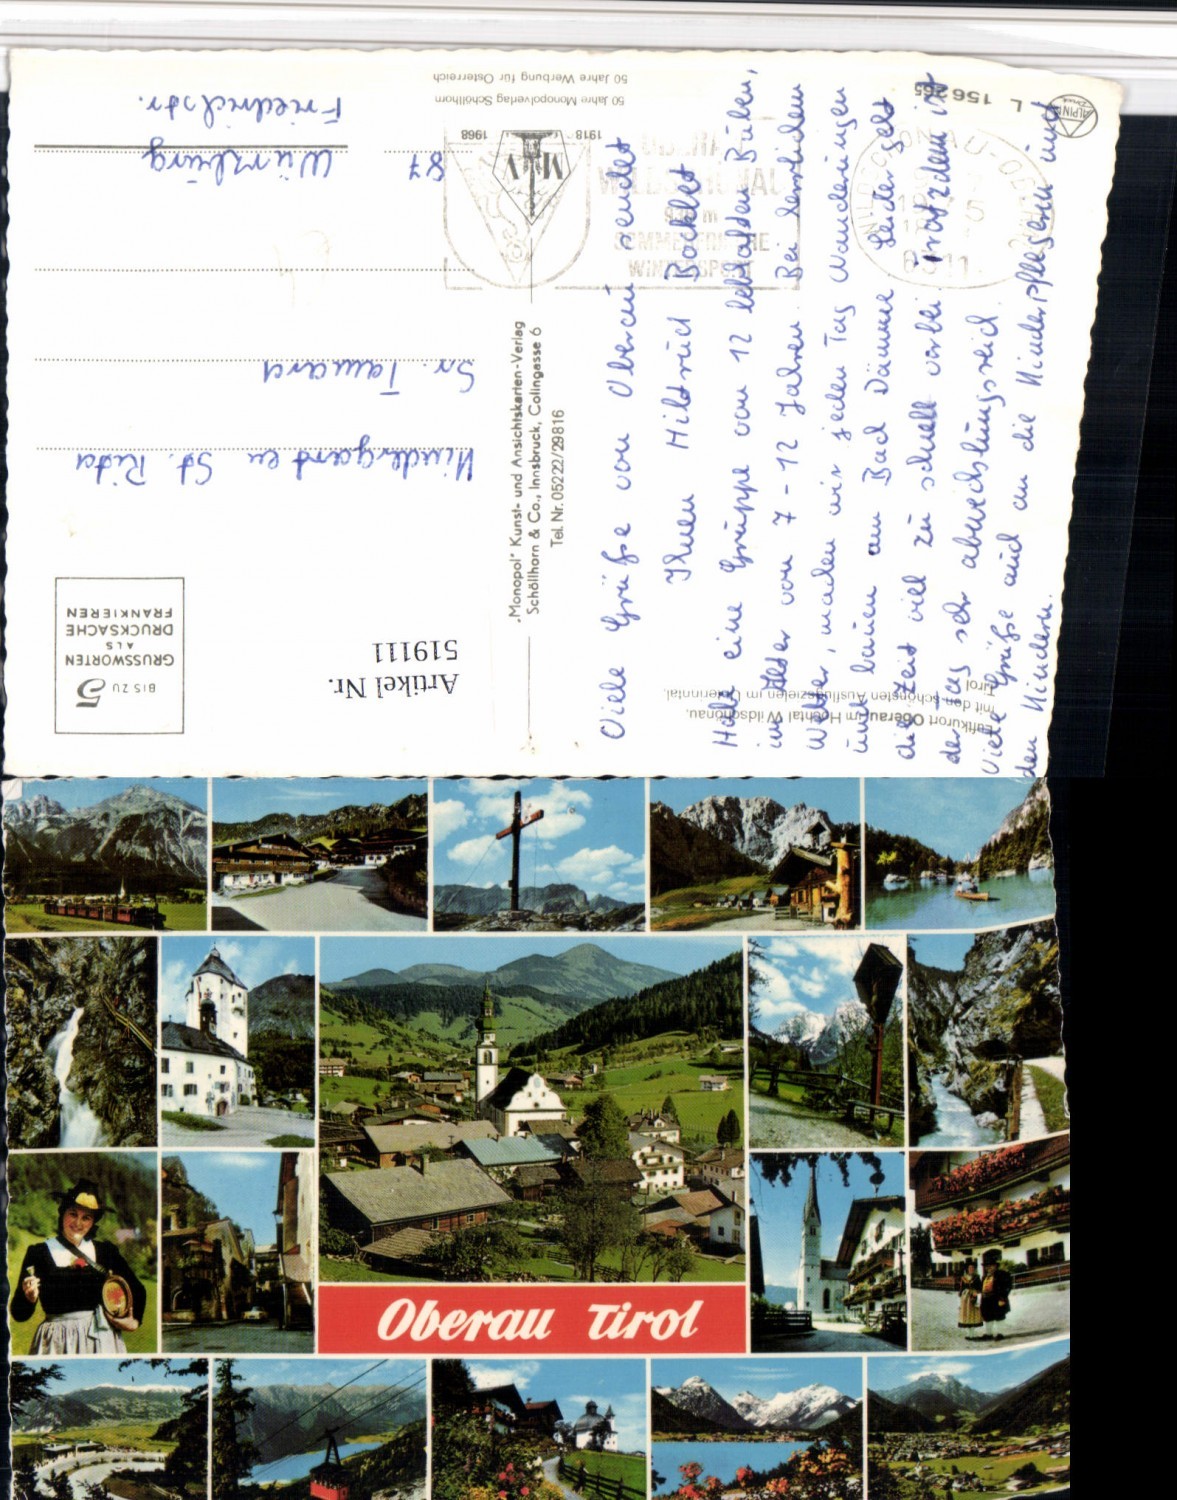 50 Jahre Werbung für Österreich
50 Jahre Monopolverlag Schöllhorn
1918
1968
MV
L 156 265
ALPINE
Druck
OBERAU
WILDSCHÖNAU
936 m
SOMMERFRISCHE
WINTERSPORT
6311
„Monopol" Kunst- und Ansichtskarten-Verlag
Schöllhorn & Co., Innsbruck, Colingasse 6
Tel. Nr. 05222/29816
BIS ZU 5
GRUSSWORTEN
ALS
DRUCKSACHE
FRANKIEREN
Artikel Nr.
519111
Luftkurort Oberau im Hochtal Wildschönau,
mit den schönsten Ausflugszielen im Unterinntal,
Tirol
Kindergarten St. Rita
Sr. Tamara
87 Würzburg
Friedrichstr.
Viele Grüße von Oberau sendet
Ihnen Hiltrud Bocklet
Habe eine Gruppe von 12 lebhaften Buben,
im Alter von 7-12 Jahren. Bei herrlichem
Wetter, machen wir jeden Tag Wanderungen
und bauen am Bach Dämme. Leider geht
die Zeit viel zu schnell vorbei. Trotzdem ist
der Tag sehr abwechslungsreich.
Viele Grüße auch an die Kinderpflegerin und
den Kindern.
Oberau Tirol